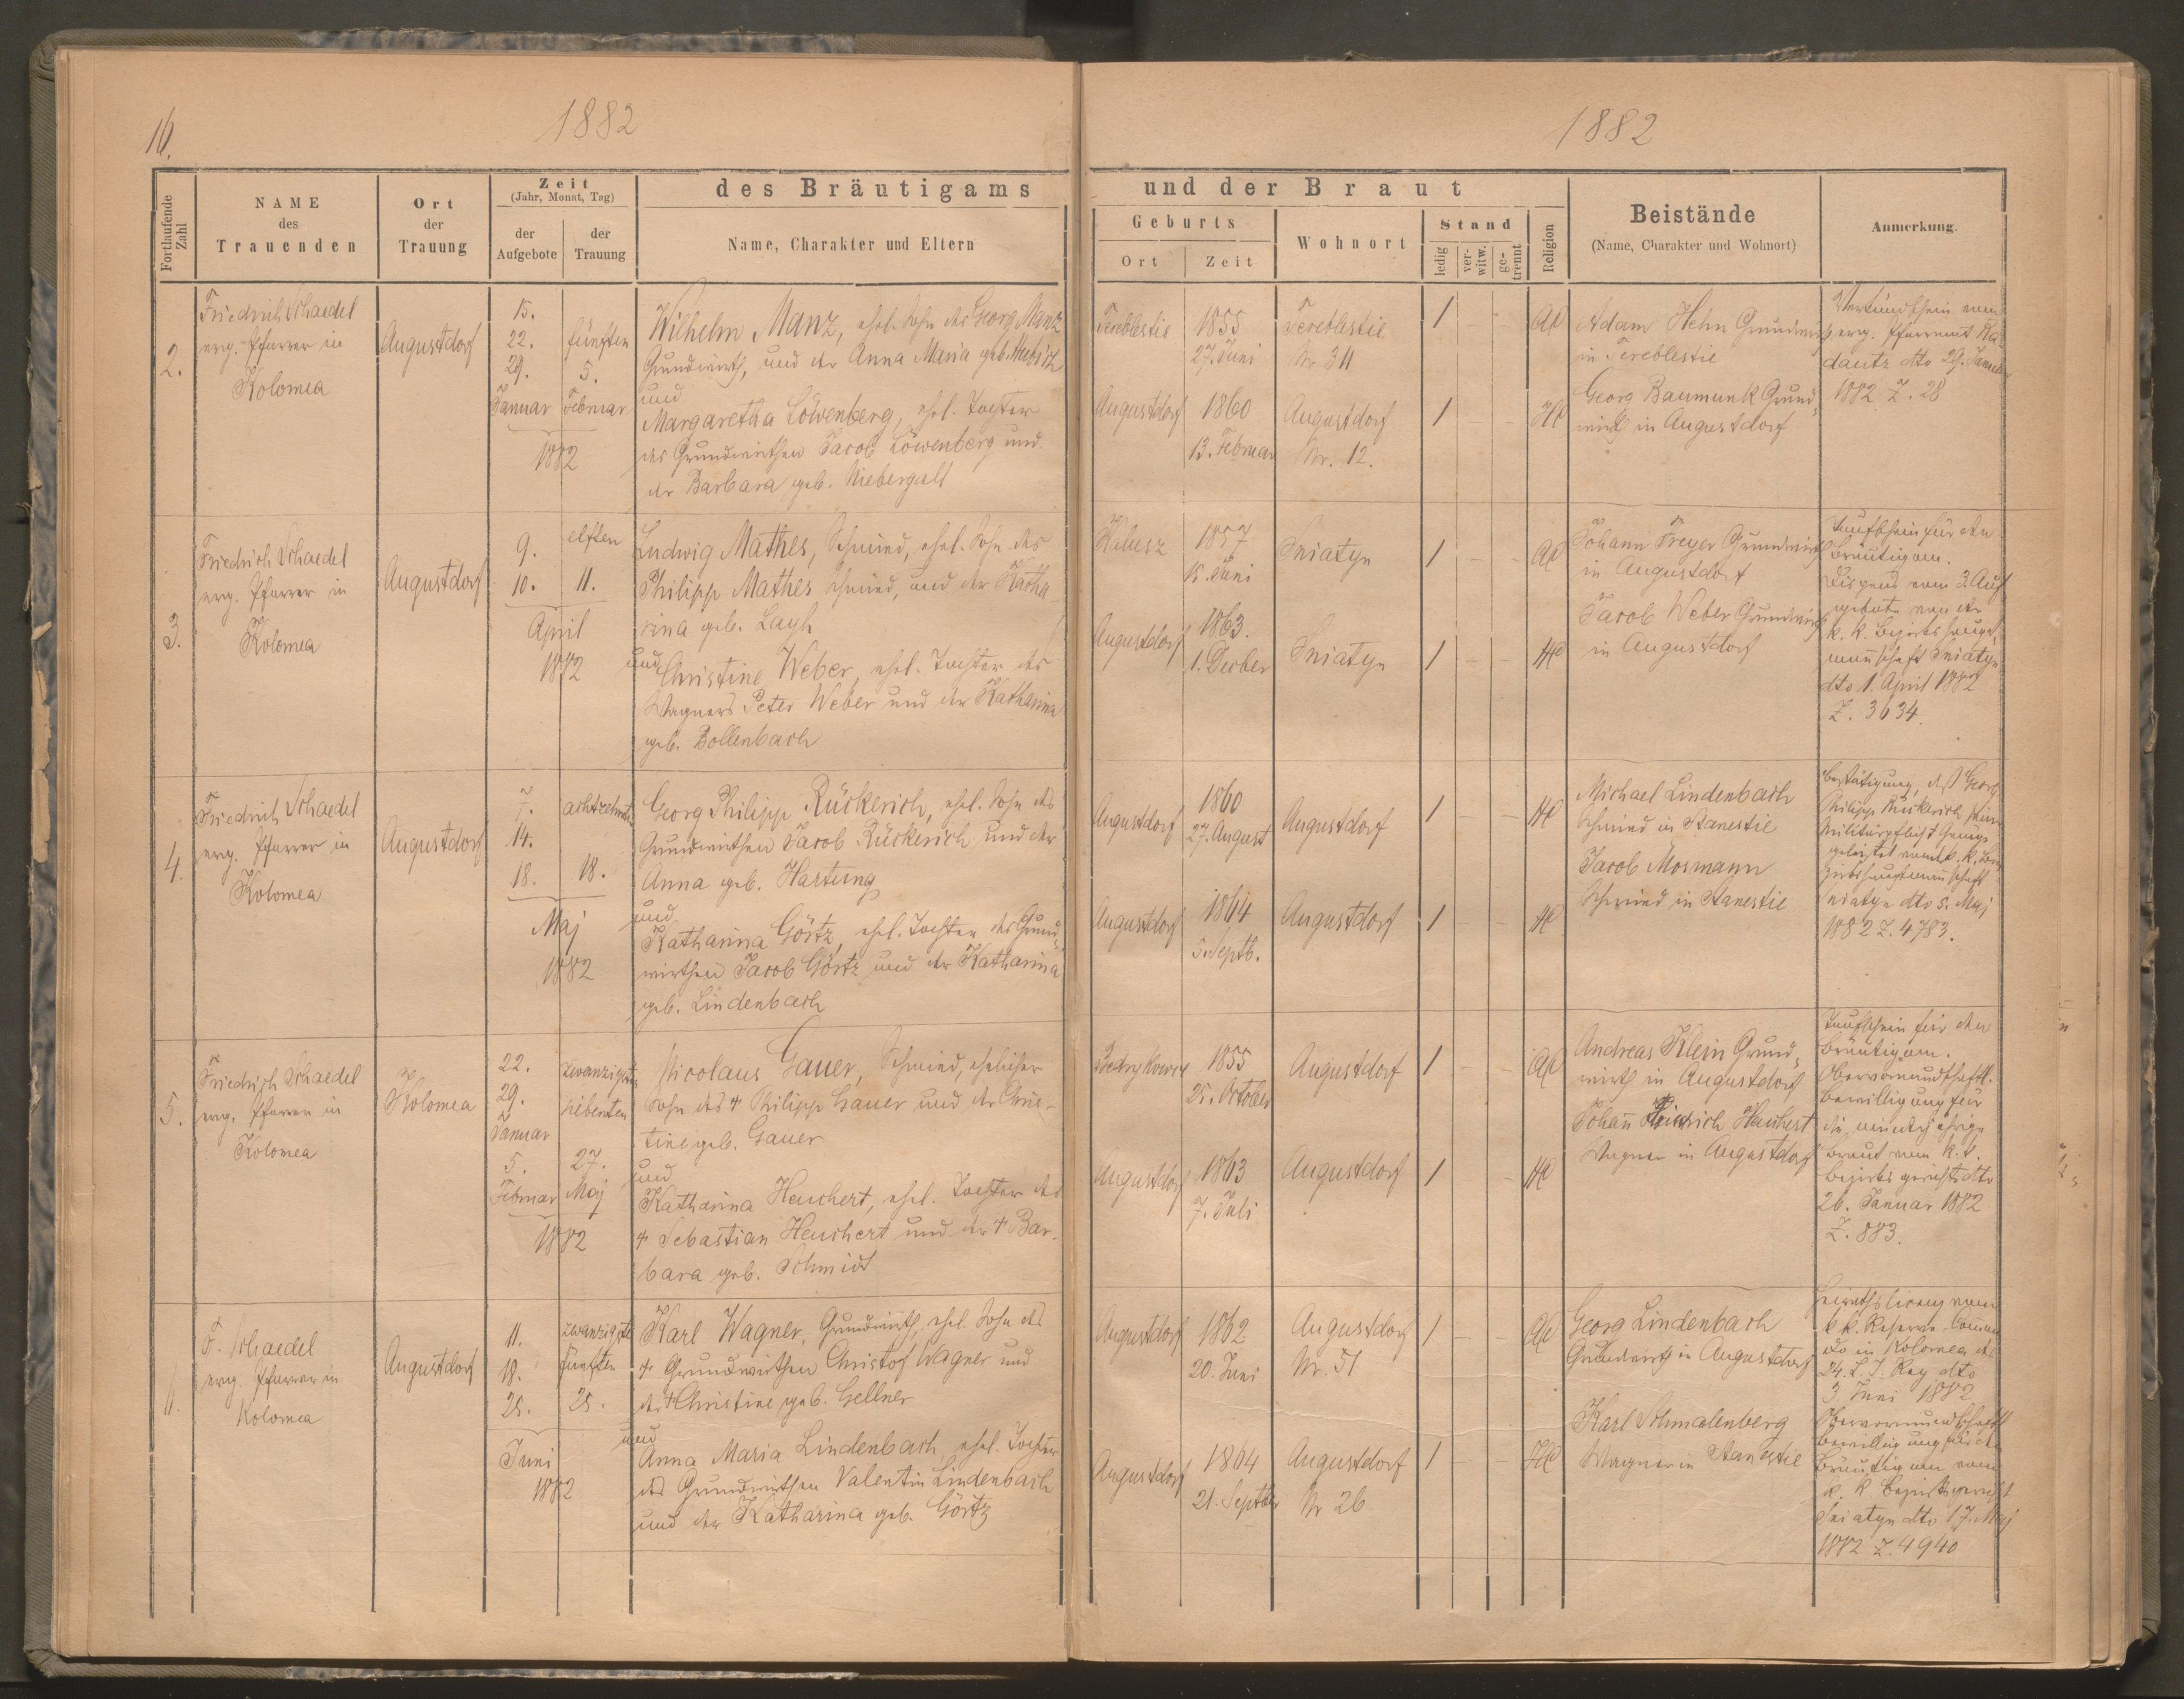 16.
1882
Fortlaufende Zahl
NAME
des
Trauenden
Ort
der
Trauung
Zeit
(Jahr, Monat, Tag)
der
Aufgebote
der
Trauung
des Bräutigams
Name, Charakter und Eltern
2.
Friedrich Schaedel
evg. Pfarrer in
Kolomea
Augustdorf
15.
22.
29.
Januar
fünften
5.
Februar
1882
Wilhelm Manz, ehel. Sohn des Georg Manz
Grundwirth, und der Anna Maria geb.
und
Margaretha Löwenberg, ehel. Tochter
des Grundwirthen Jacob Löwenberg und
der Barbara geb. Niebergall
3.
Friedrich Schaedel
evg. Pfarrer in
Kolomea
Augustdorf
9.
10.
elften
11.
April
1882
Ludwig Mathes, Schmied, ehel. Sohn des
Philipp Mathes Schmied, und der Katha
rina geb.
und Christine Weber, ehel. Tochter des
Wagners Peter Weber und der Katharina
geb. Bollenbach
4.
Friedrich Schaedel
evg. Pfarrer in
Kolomea
Augustdorf
7.
14.
18.
achtzehnten
18.
Maj
1882
Georg Philipp Rückerich, ehel. Sohn des
Grundwirthen Jacob Rückerich und der
Anna geb. Hartung
und
Katharina Görtz, ehel. Tochter des Grund-
wirthen Jacob Görtz und der Katharina
geb. Lindenbach
5.
Friedrich Schaedel
evg. Pfarrer in
Kolomea
Kolomea
22.
29.
Januar
5.
Februar
siebenten
27.
Maj
1882
Nicolaus Gauer, Schmied, ehelicher
Sohn des † Philipp Gauer und der Chris-
tine geb. Gauer
und
Katharina Heuchert, ehel. Tochter des
† Sebastian Heuchert und der † Bar-
bara geb. Schmidt
6.
F. Schaedel
evg. Pfarrer in
Kolomea
Augustdorf
11.
18.
25.
fünften
25.
Juni
1882
Karl Wagner, Grundwirth, ehel. Sohn des
† Grundwirthen Christof Wagner und
der † Christine geb. Gellner
und
Anna Maria Lindenbach, ehel. Tochter
des Grundwirthen Valentin Lindenbach
und der Katharina geb. Görtz
1882
und der Braut
Geburts
Ort
Zeit
Wohnort
Stand
ledig
ver-
witw.
ge-
trennt
Religion
Beistände
(Name, Charakter und Wohnort)
Anmerkung.
Tereblestie
1855
27. Juni
Tereblestie
Nr 311
1
AC
Adam Hehn Grundwirth
in Tereblestie
Augustdorf
1860
13. Februar
Augustdorf
Nr. 12.
1
HC
Georg Baumunk Grund-
wirth in Augustdorf
evg. Pfarramt Ra-
dautz dto 29. Januar
1882 Z. 28
1857
15. Juni
Sniatyn
1
AC
Johann Freyer Grundwirth
in Augustdorf
Augustdorf
1863.
1. Decber
Sniatyn
1
HC
Jacob Weber Grundwirth
in Augustdorf
Taufschein für den
Bräutigam.
Dispens vom 3. Auf
gebote von der
k. k. Bezirkshaupt
mannschaft Sniatyn
dto 1. April 1882
Z. 3634.
Augustdorf
1860
27. August
Augustdorf
1
HC
Michael Lindenbach
Schmied in Stanestie
Augustdorf
1864
5. Septb.
Augustdorf
1
HC
Jacob Mosmann
Schmied in Stanestie
Bestätigung, daß Georg
Philipp Rückerich seiner
Militärpflicht Genüge
geleistet von der k. k. Be-
zirkshauptmannschaft
Sniatyn dto 5. Maj
1882 Z. 4783.
1855
25. October
Augustdorf
1
AC
Andreas Klein Grund-
wirth in Augustdorf
Augustdorf
1863
7. Juli
Augustdorf
1
HC
Johann Heuchert
Wagner in Augustdorf
Taufschein für den
Bräutigam.
Obervormundschaftl.
Bewilligung für
die minderjährige
Braut vom k. k.
Bezirksgericht dto
26. Januar 1882
Z. 883.
Augustdorf
1862
20. Juni
Augustdorf
Nr. 51
1
AC
Georg Lindenbach
Grundwirth in Augustdorf
Augustdorf
1864
21. Septber
Augustdorf
Nr 26
1
HC
Karl Schmalenberg
Wagner in Stanestie
Heirathslicenz vom
k k. Reserve Comman
do in Kolomea des
24. L. I. Reg dto
3 Juni 1882
Obervormundschaftl
Bewilligung für den
Bräutigam vom
k. k Bezirksgericht
Sniatyn dto 17. Maj
1882 Z. 4940